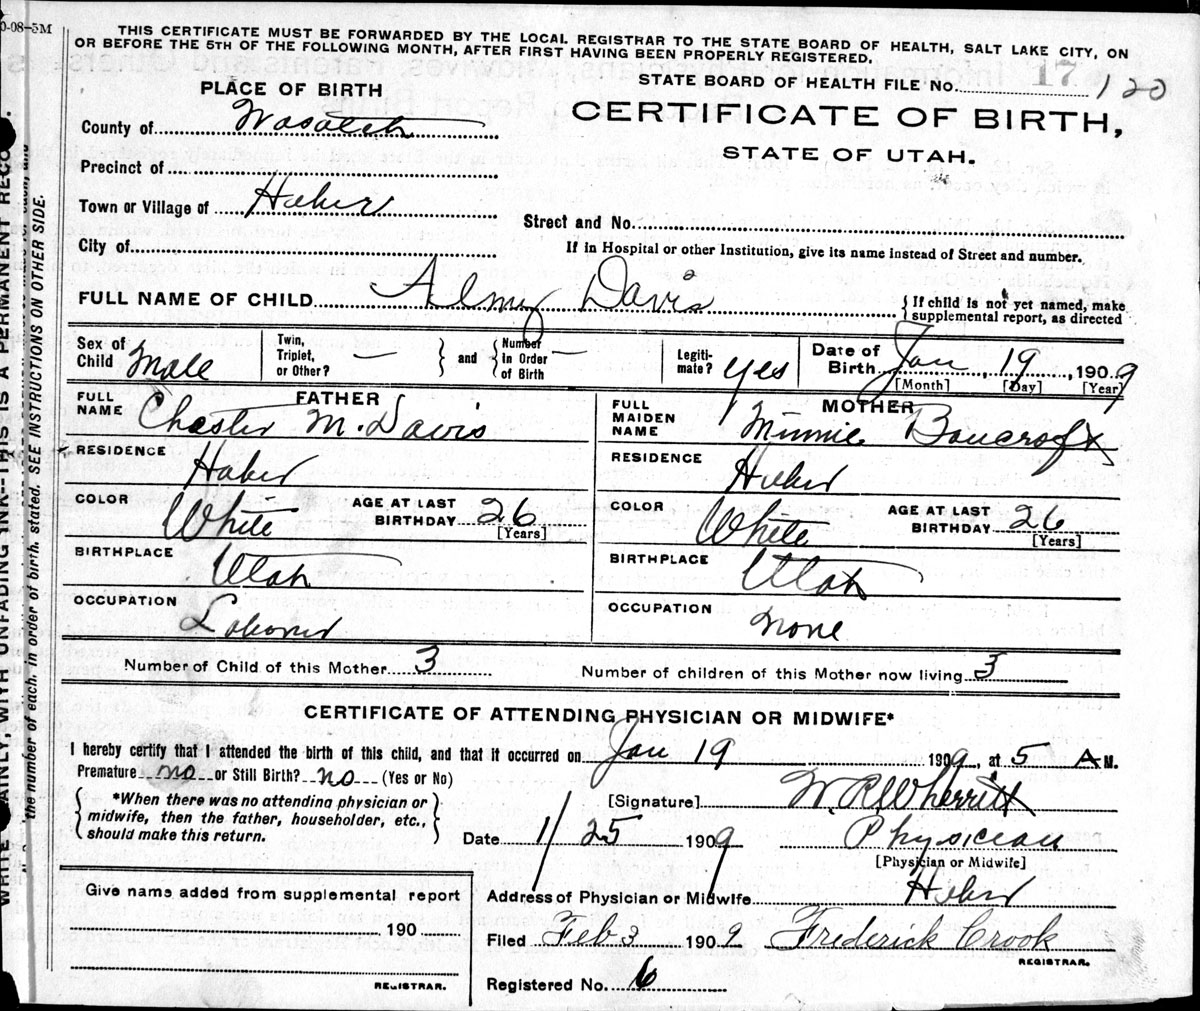 0-08-5M
THIS CERTIFICATE MUST BE FORWARDED BY THE LOCAL REGISTRAR TO THE STATE BOARD OF HEALTH, SALT LAKE CITY, ON
OR BEFORE THE 5TH OF THE FOLLOWING MONTH, AFTER FIRST HAVING BEEN PROPERLY REGISTERED.
17
STATE BOARD OF HEALTH FILE No. 120
PLACE OF BIRTH
CERTIFICATE OF BIRTH,
STATE OF UTAH.
County of Wasatch
Precinct of
Town or Village of Heber
Street and No.
City of
If in Hospital or other Institution, give its name instead of Street and number.
FULL NAME OF CHILD Almy Davis
{ If child is not yet named, make
supplemental report, as directed
Sex of Child Male
Twin, Triplet, or Other? —
} and {
Number in Order of Birth —
Legitimate? Yes
Date of Birth Jan, 19, 1909
[Month] [Day] [Year]
FATHER
FULL NAME Chester M. Davis
RESIDENCE Heber
COLOR White
AGE AT LAST BIRTHDAY 26
[Years]
BIRTHPLACE Utah
OCCUPATION Laborer
MOTHER
FULL MAIDEN NAME Minnie Bancroft
RESIDENCE Heber
COLOR White
AGE AT LAST BIRTHDAY 26
[Years]
BIRTHPLACE Utah
OCCUPATION None
Number of Child of this Mother 3
Number of children of this Mother now living 3
CERTIFICATE OF ATTENDING PHYSICIAN OR MIDWIFE*
I hereby certify that I attended the birth of this child, and that it occurred on Jan 19 1909, at 5 A M.
Premature no or Still Birth? no (Yes or No)
{ *When there was no attending physician or
midwife, then the father, householder, etc.,
should make this return. }
[Signature] W. R. Wherritt
Date 1/25 1909
Physician
[Physician or Midwife]
Address of Physician or Midwife Heber
Give name added from supplemental report
190
REGISTRAR.
Filed Feb 3 1909 Frederick Crook
REGISTRAR.
Registered No. 6
WRITE PLAINLY, WITH UNFADING INK--THIS IS A PERMANENT RECO
the number of each, in order of birth, stated. SEE INSTRUCTIONS ON OTHER SIDE.